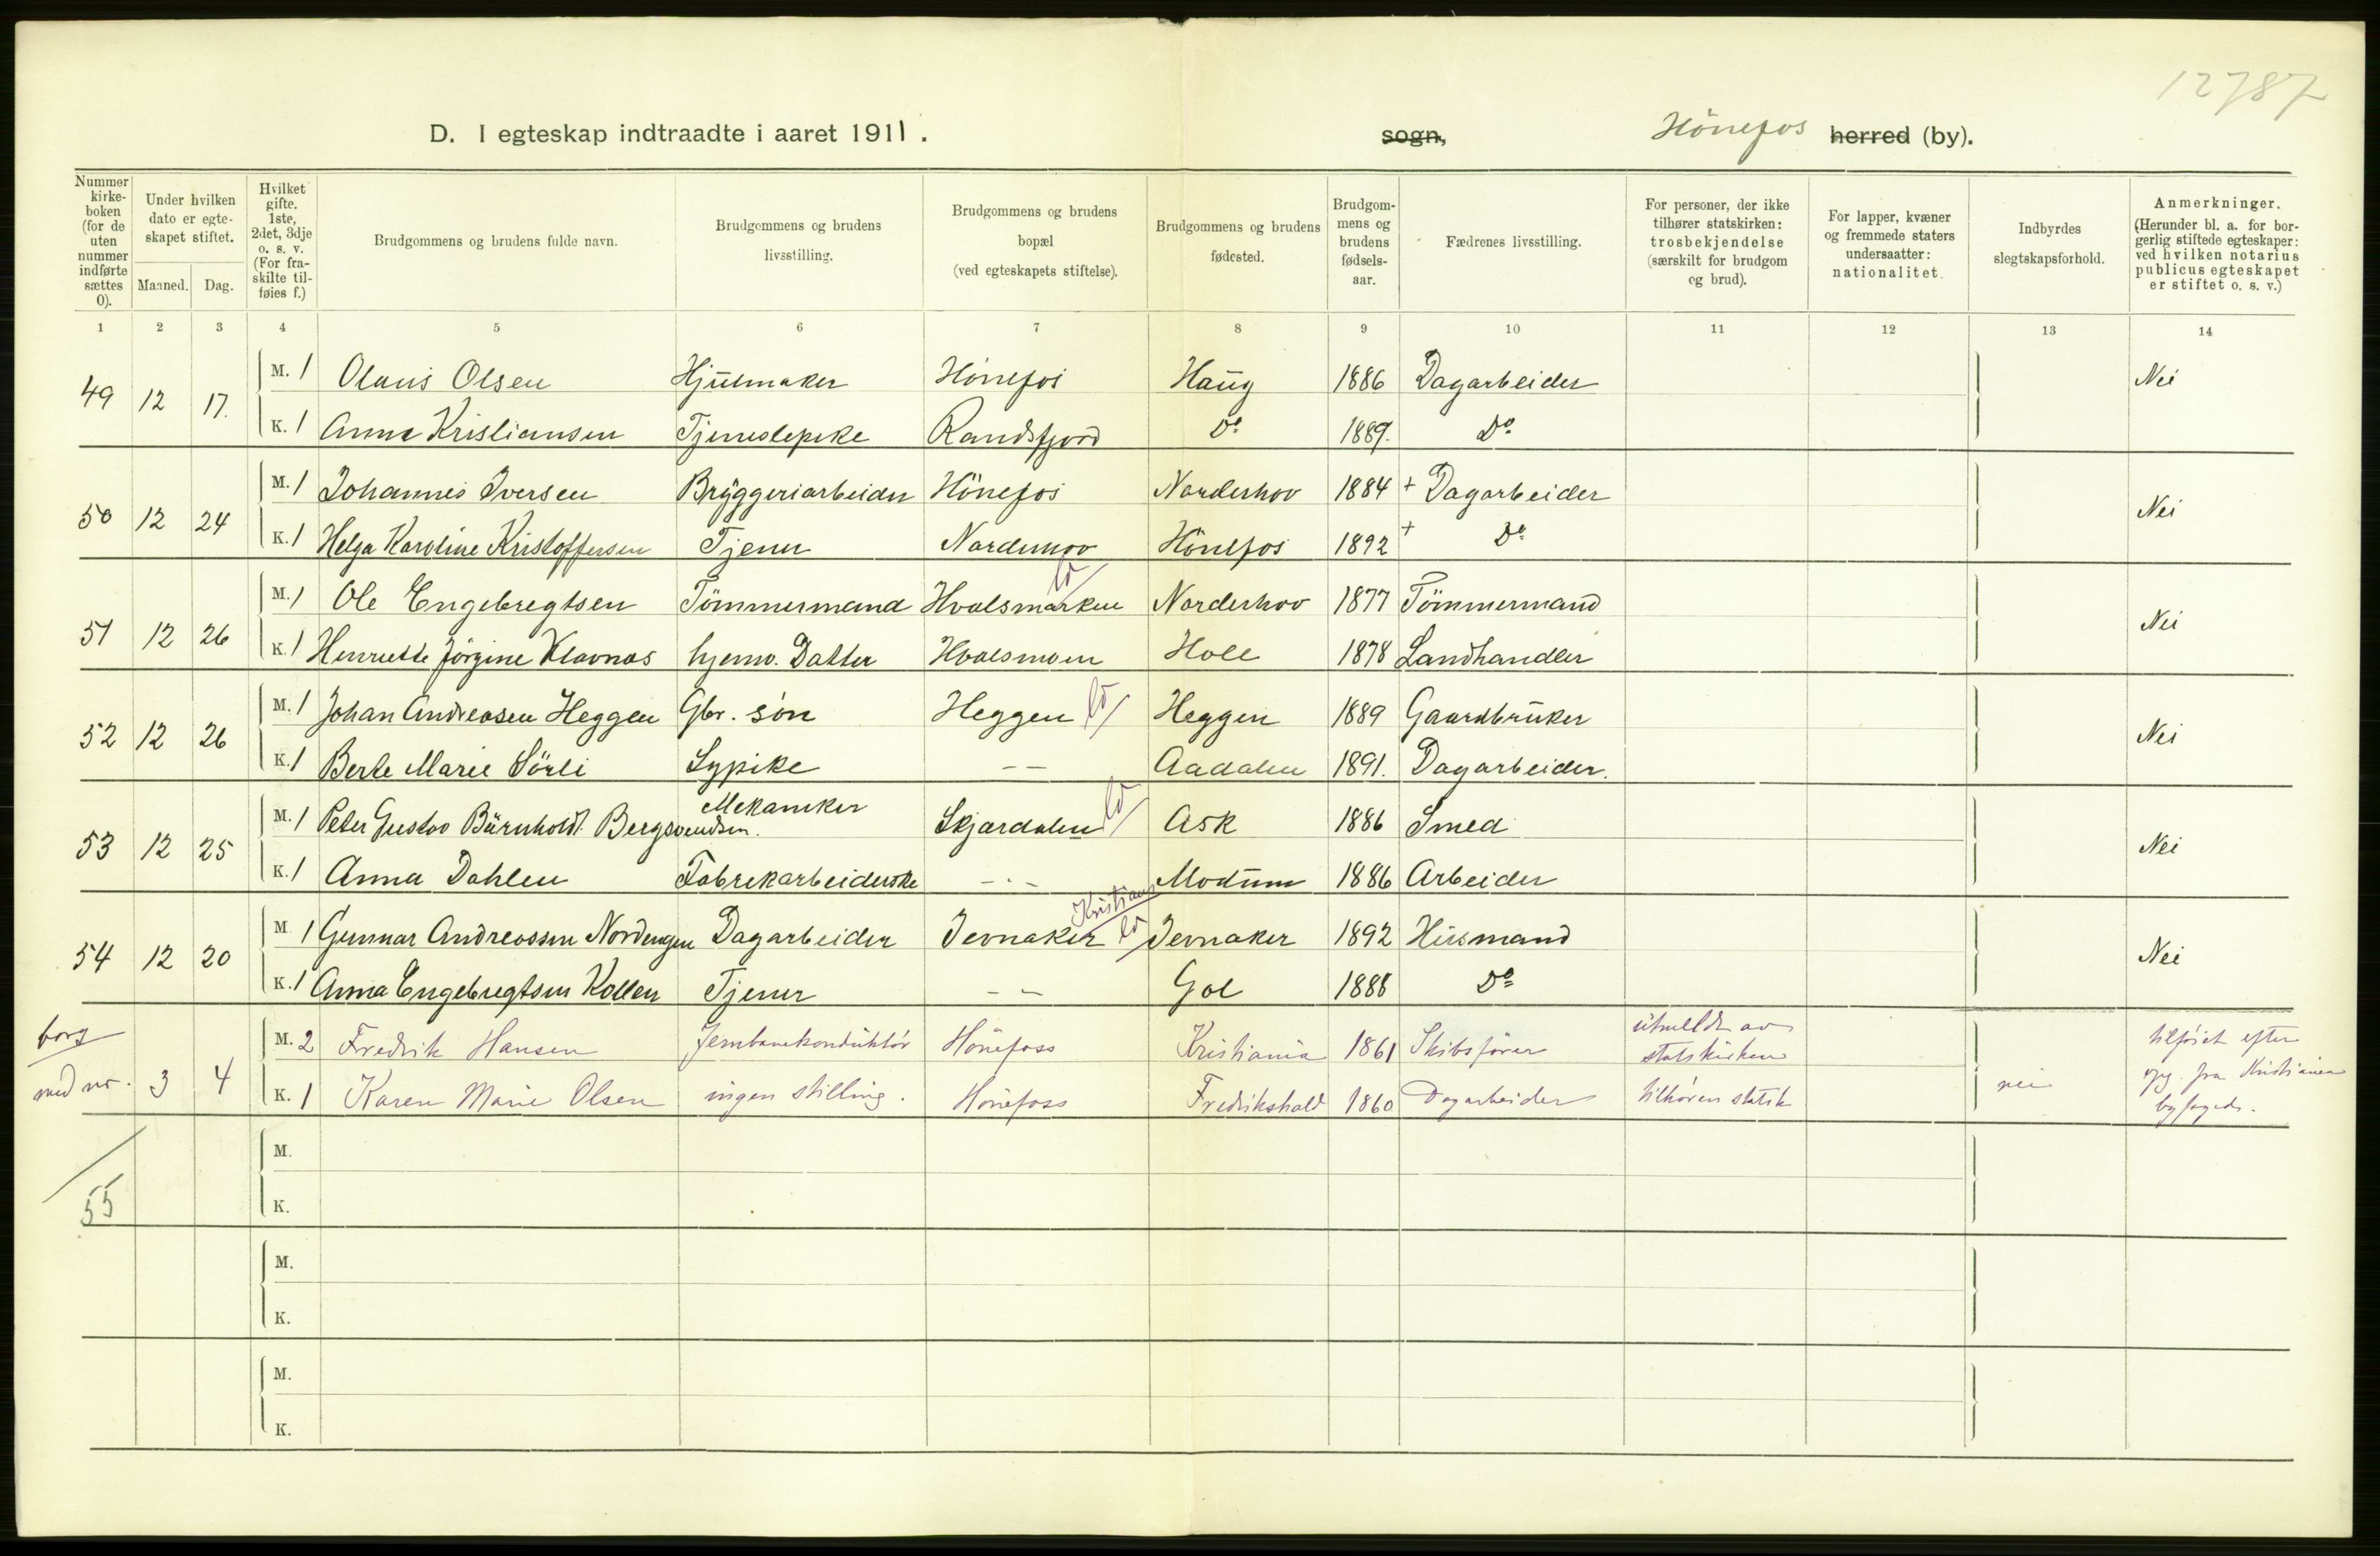 12787
D. I egteskap indtraadte i aaret 1911. sogn, Hönefos herred (by).
Nummer kirke-boken (for de uten nummer indførte sættes 0).
Under hvilken dato er egte-skapet stiftet.
Maaned. Dag.
Hvilket gifte. 1ste, 2det, 3dje o. s. v. (For fra-skilte til-føies f.)
Brudgommens og brudens fulde navn.
Brudgommens og brudens livsstilling.
Brudgommens og brudens bopæl (ved egteskapets stiftelse).
Brudgommens og brudens fødested.
Brudgom-mens og brudens fødsels-aar.
Fædrenes livsstilling.
For personer, der ikke tilhører statskirken: trosbekjendelse (særskilt for brudgom og brud).
For lapper, kvæner og fremmede staters undersaatter: nationalitet.
Indbyrdes slegtskapsforhold.
Anmerkninger. (Herunder bl. a. for bor-gerlig stiftede egteskaper: ved hvilken notarius publicus egteskapet er stiftet o. s. v.)
1 2 3 4 5 6 7 8 9 10 11 12 13 14
49 12 17. M. 1 Olaus Olsen Hjulmaker Hönefos Haug 1886 Dagarbeider Nei
K. 1 Anna Kristiansen Tjenestepike Randsfjord Do 1889. Do
50 12 24 M. 1 Johannes Iversen Bryggeriarbeider Hönefos Norderhov 1884 + Dagarbeider Nei
K. 1 Helga Karoline Kristoffersen Tjener Norderhov Hönefos 1892 + Do
51 12 26 M. 1 Ole Engebregtsen Tömmermand Hvalsmarken Norderhov 1877 Tömmermand Nei
K. 1 Henriette Jörgine Klavnæs hjemv. Datter Hvalsmoen Hole 1878 Landhandler
52 12 26 M. 1 Johan Andreasen Heggen Gbr. sön Heggen Heggen 1889 Gaardbruker Nei
K. 1 Berte Marie Sörli Sypike — — Aadalen 1891. Dagarbeider.
53 12 25 M. 1 Peter Gustav Bärnholdt Bergsvendsen. Mekaniker Skjærdalen Ask 1886 Smed Nei
K. 1 Anna Dahlen Fabrekarbeiderske — · — Modum 1886 Arbeider
54 12 20 M. 1 Gunnar Andreassen Nordengen Dagarbeider Jevnaker Kristians Jevnaker 1892 Husmand Nei
K. 1 Anna Engebregtsen Kollen Tjener — — Gol 1888 Do
borg M. 2 Fredrik Hansen Jernbanekonduktör Hönefoss Kristiania 1861 Skibsförer utmeldt av statskirken tilföiet efter
med nr. 3 4 K. 1 Karen Marie Olsen ingen stilling. Hönefoss Fredrikshald 1860 Dagarbeider tilhören statsk nei opg. fra Kristiania byfoged.
M.
55 K.
M.
K.
M.
K.